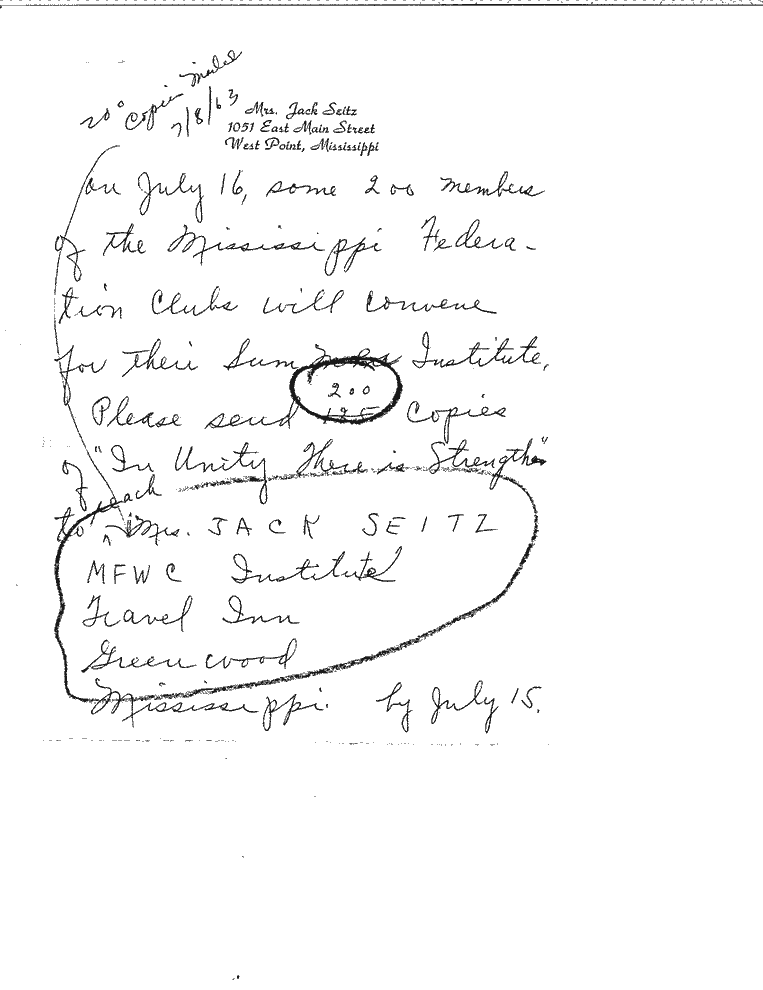 200 Copies Mailed
7/8/63
Mrs. Jack Seitz
1051 East Main Street
West Point, Mississippi
On July 16, some 200 members
of the Mississippi Federa-
tion Clubs will convene
for their Summer Institute.
200
Please send 125 copies
of "In Unity There is Strength"
reach
to ^ Mrs. JACK SEITZ
MFWC Institute
Travel Inn
Greenwood
Mississippi. by July 15.